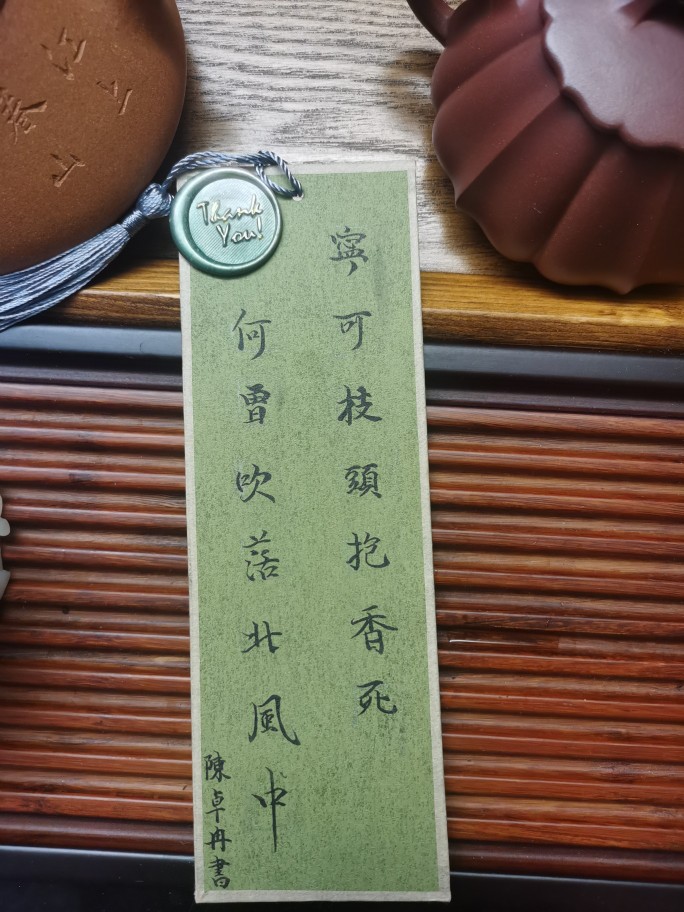 寧可枝頭抱香死
何曾吹落北風中
陳卓冉書
Thank
You!